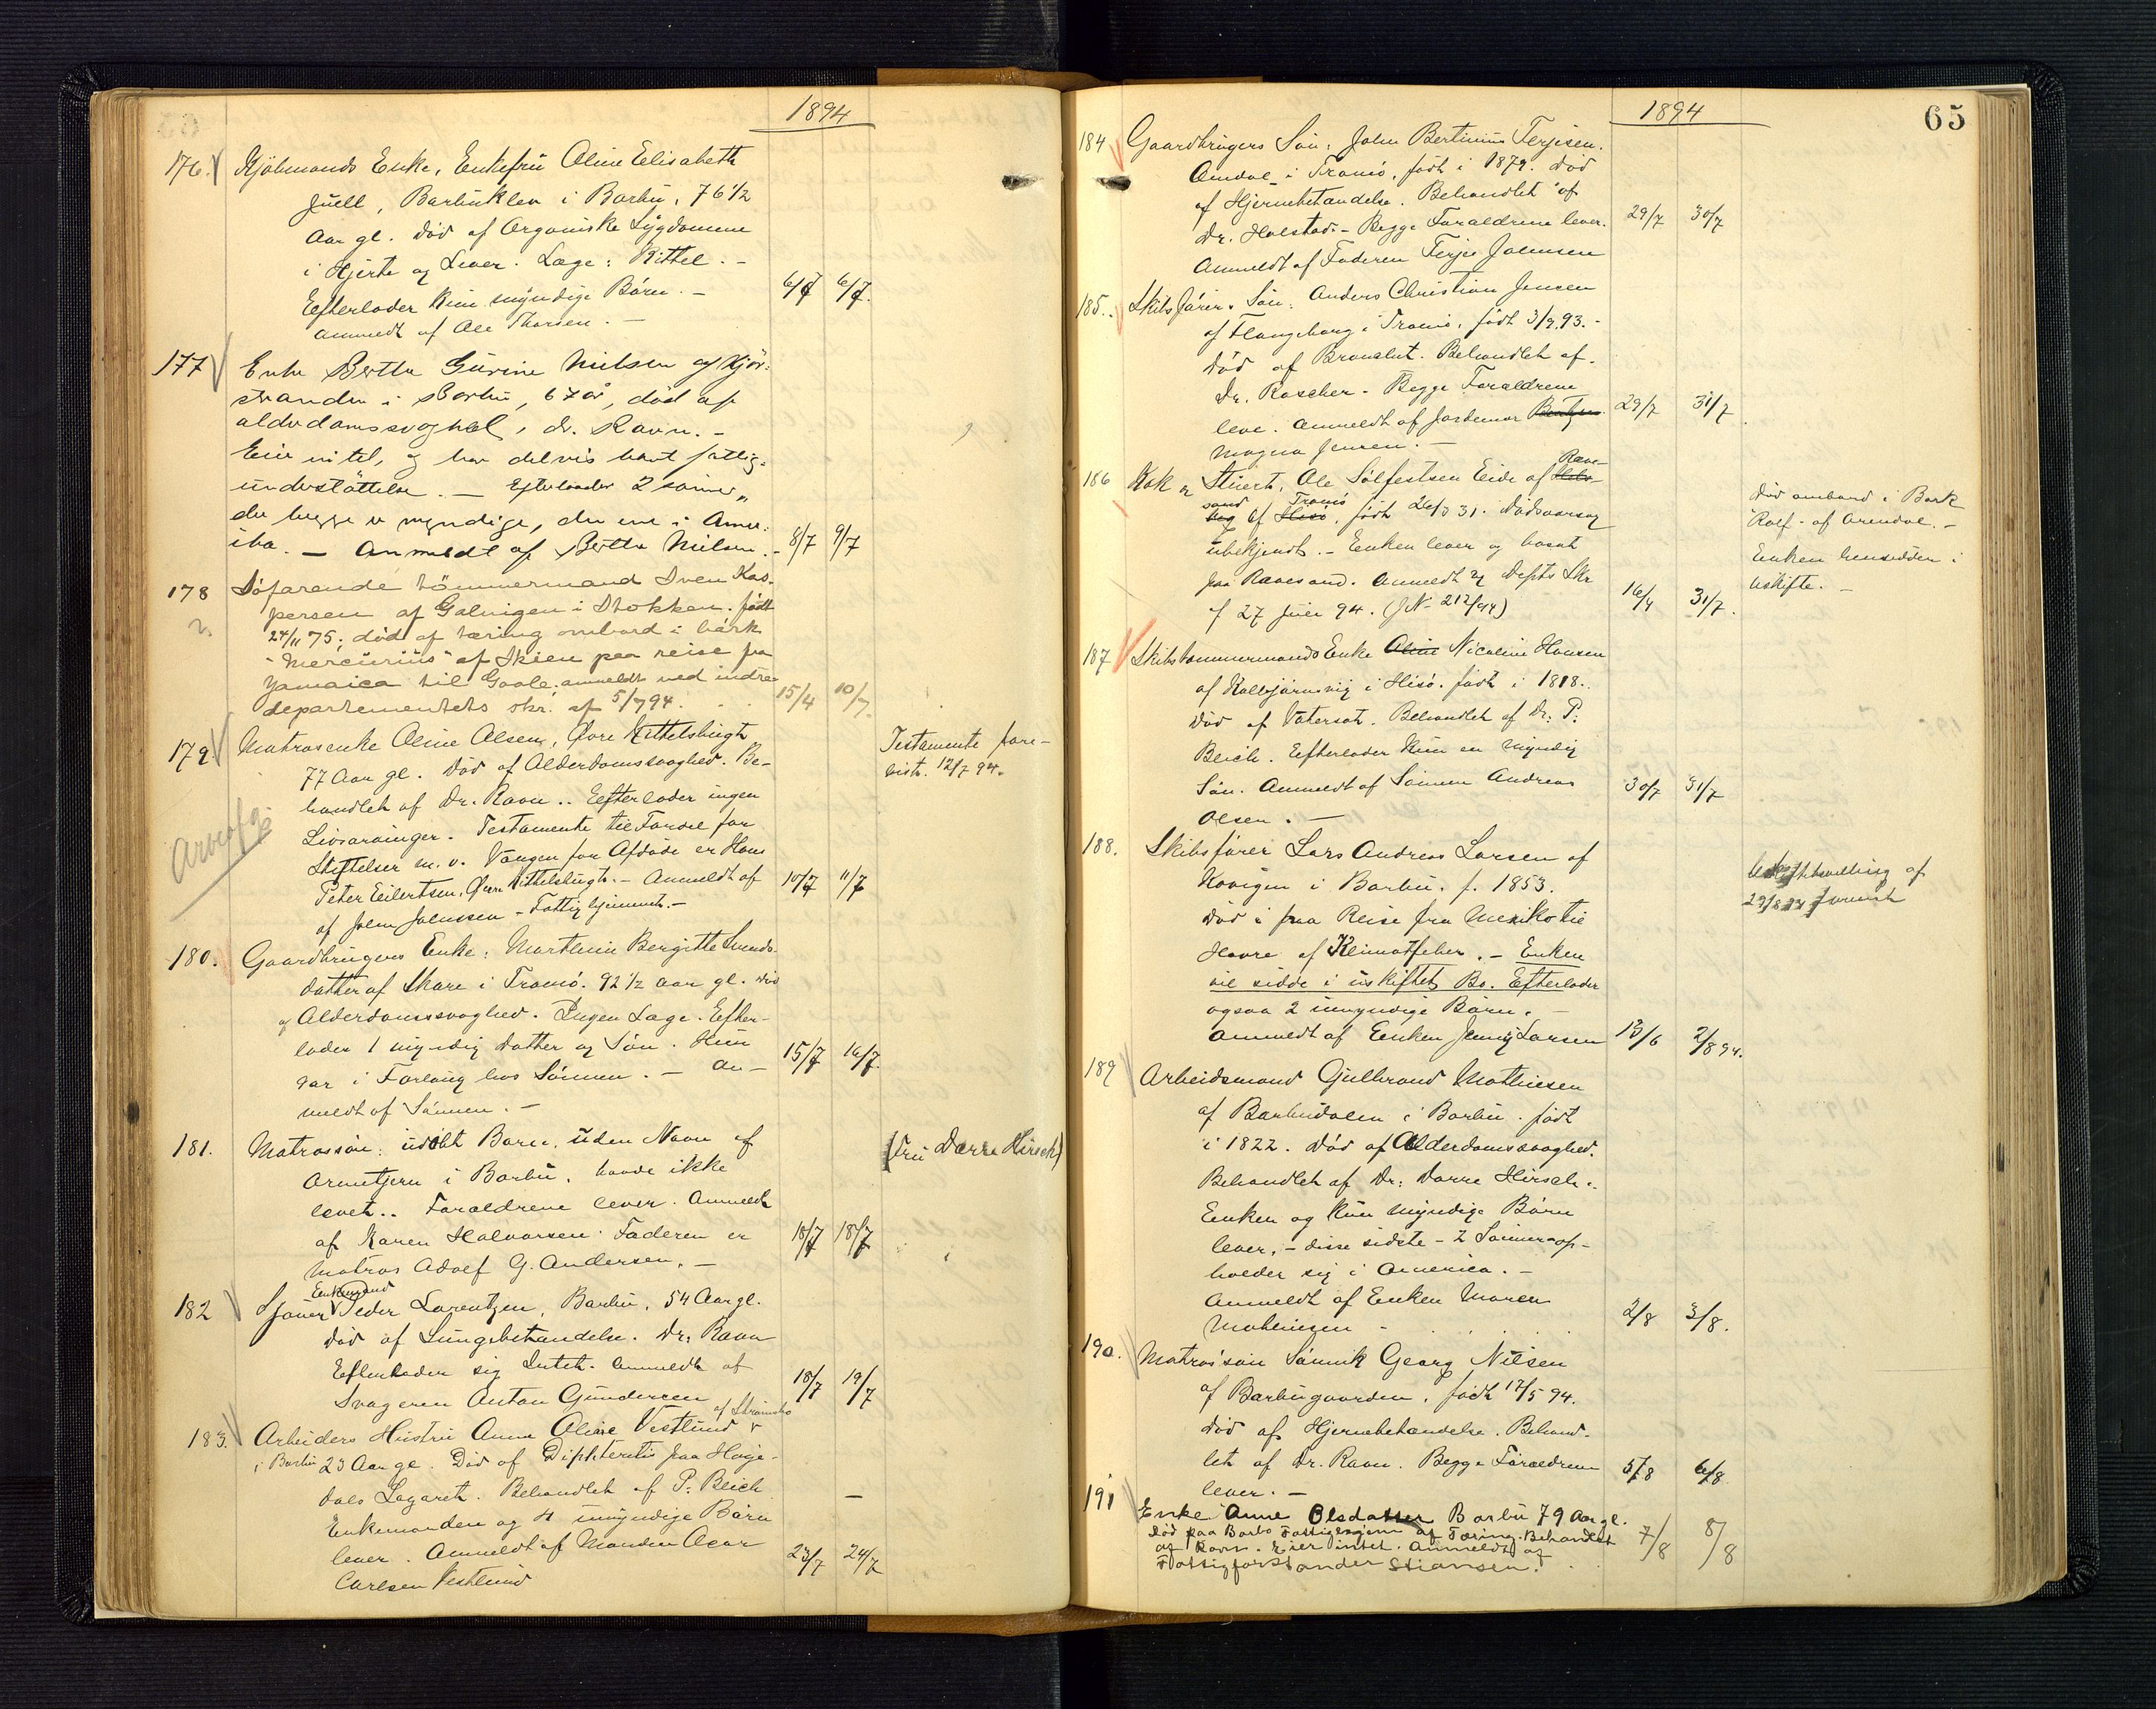 1894
176. Kjöbmands Enke, Enkefru Oline Elisabeth
Juell, Barbuklev i Barbu, 76 1/2
Aar gl. död af Organiske Sygdomme
i Hjerte og Lever. Læge: Kittel. -
Efterlader kun myndige Börn. - 6/7 6/7.
anmeldt af Ole Thorsen. -
177 Enke Berthe Gurine Nielsen af Kjör-
stranden i Barbu, 67 år, död af
alderdomssvaghed, dr. Ravn. -
Eier intet, og har delvis havt fattig-
understöttelse. - Efterlader 2 sönner,
der begge er myndige, den ene i Ame-
ika. - Anmeldt af Berthe Nielsen. - 8/7 9/7
178 Söfarende tömmermand Sven Kas-
persen af Galeigen i Stokken. född
24/11 75; död af tæring ombord i bark
"Mercurius" af Skien paa reise fra
Yamaica til Goole. anmeldt ved indre-
departementets skr. af 5/7 94. 15/4 10/7.
179. Matrosenke Oline Olsen, Øvre Kittelsbugt
77 Aar gl. Död af Alderdomssvaghed. Be-
handlet af Dr. Ravn.. Efterlader ingen
Livsarvinger. Testamente til Fordel for
Stiftelser m.v. Værgen for Afdöde er Hans
Peter Eilertsen, Øvre Kittelsbugt. - Anmeldt af 10/7 11/7
af John Johnssen - Fattighjemmet. -
Testamente fore-
vist. 12/7 94.
Arveafg.
180. Gaardbrugers Enke: Marthine Bergitte Svends-
datter af Skare i Tromö. 92 1/2 aar gl. död
af Alderdomssvaghed. Ingen Læge. Efter-
lader 1 myndig Datter og Sön. Hun
var i Forlaug hos Sönnen. - An- 15/7 16/7.
meldt af Sönnen. -
181. Matrossön: udöbt Barn, uden Navn af
Arnetjern i Barbu, havde ikke
levet.. Forældrene lever. Anmeldt
af Karen Halvorsen. Faderen er 18/7 18/7
Matros Adolf G. Andersen. -
(Fru Dorre Hirsch)
182 Sjauer Enkemand Peder Lorentzen, Barbu, 54 Aar gl.
död af Lungebetændelse. Dr: Ravn
Efterlader sig Intet. Anmeldt af
Svageren Anton Gundersen 18/7 19/7
183. Arbeiders Hustru Anne Oline Vestlund af Strömsbo
i Barbu 23 Aar gl. Död af Diphteritis paa Höge-
dals Lazaret. Behandlet af P. Bleich
Enkemanden og 4 umyndige Börn
lever. Anmeldt af Manden Oscar 23/7 24/7
Carlsen Vestlund
1894
65
184 Gaardbrugers Sön: John Bertinius Terjesen.
Omdal i Tromö, födt i 1879. Död
af Hjernebetændelse. Behandlet af
Dr. Holstad. - Begge Forældrene lever. 29/7 30/7
Anmeldt af Faderen Terje Johnsen
185. Skibsförers Sön: Anders Christian Jensen
af Haugeborg i Tromö, födt 3/9.93. -
Död af Bronchit. Behandlet af
Dr. Roscher - Begge Forældrene
leve. Anmeldt af Jordemor Bentzen 29/7 31/7.
Magna Jensen. -
186 Kok & Stuert, Ole Solfestsen Eide af Rave-
sand Tromö, födt 26/3 31. Dödsaarsag
ubekjendt. - Enken lever og bosat
paa Ravesand. Anmeldt ved Depts Skr
af 27 Juli 94. (J.N. 212/94) 16/4 31/7.
Död ombord i Bark
"Rolf" af Arendal. -
Enken hensidder i
Uskifte. -
187 Skibstømmermands Enke Oline Nicoline Hansen
af Kolbjörnsvig i Hisö. födt i 1818.
död af Vatersot. Behandlet af Dr: P.
Bleich. Efterlader kun en myndig
Sön. Anmeldt af Sönnen Andreas 30/7 31/7
Olsen. -
188. Skibsförer Lars Andreas Larsen af
Kovigen i Barbu. f. 1853.
Död i paa Reise fra Mexiko til
Havre af Klimatfeber. - Enken
vil sidde i uskiftet Bo. Efterlader
ogsaa 2 umyndige Börn. -
Anmeldt af Enken Jenny Larsen 13/6 2/8 94.
29/8 94 forevist
189 Arbeidsmand Gulbrand Mathiesen
af Barbudalen i Barbu. födt
i 1822. Död af Alderdomssvaghed.
Behandlet af Dr: Dorre Hirsch.
Enken og kun myndige Börn
lever, - disse sidste - 2 Sönner - op-
holder sig i America. -
Anmeldt af Enken Maren
Mathiesen - 2/8 3/8.
190. Matrossön Sönnik Georg Nilsen
af Barbugaarden, födt 17/5 94.
Död af Hjernebetændelse. Behand-
let af Dr. Ravn. Begge Forældrene 5/8 6/8
lever. -
191 Enke Anne Olsdatter Barbu 79 Aar gl.
död paa Barbo Fattighjem af Tæring. Behandlet
af Ravn. Eier intet. Anmeldt af 7/8 8/8
Fattigforstander Stiansen.